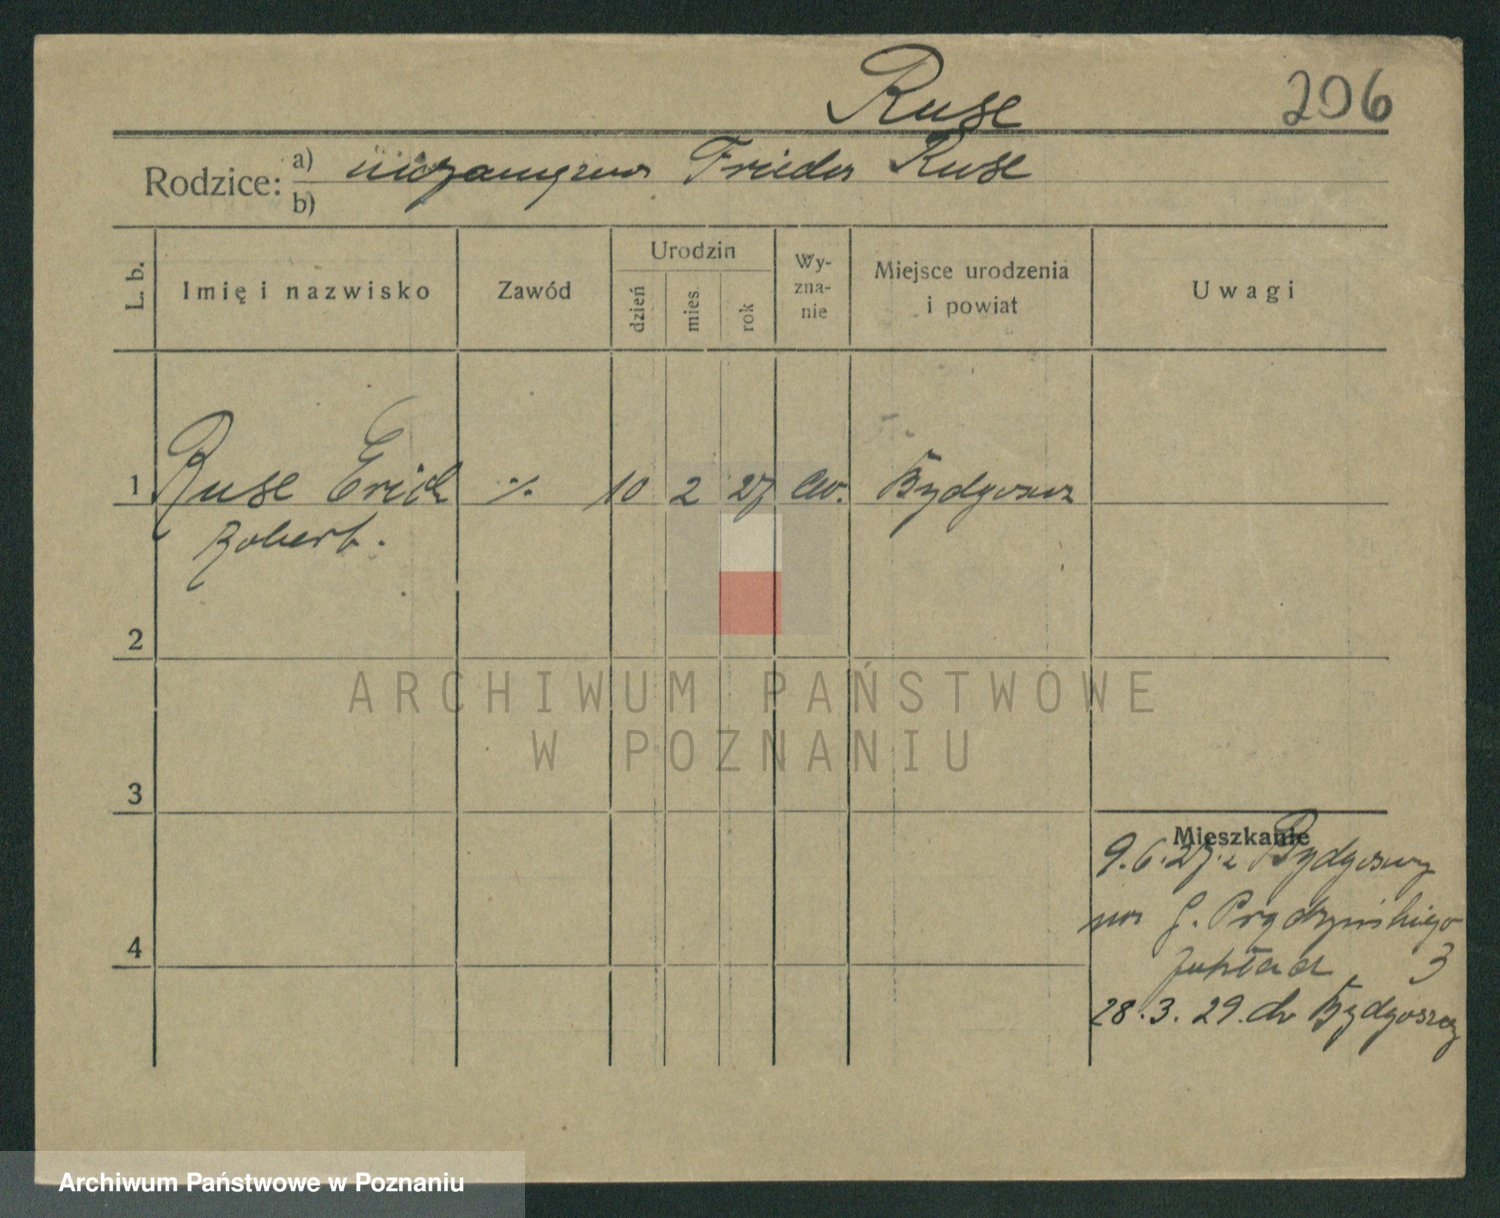 Ruse
206
Rodzice: a) niezamężna Frieda Ruse
b)
L. b.
Imię i nazwisko
Zawód
Urodzin
dzień
mies.
rok
Wy-
zna-
nie
Miejsce urodzenia
i powiat
Uwagi
1 Ruse Erich ./. 10 2 27 ew. Bydgoszcz
Robert.
2
ARCHIWUM PAŃSTWOWE
W POZNANIU
3
Mieszkanie
9.6.27 z Bydgoszczy
na G. Prądzyńskiego
zakład 3
28.3.29. do Bydgoszczy
4
Archiwum Państwowe w Poznaniu